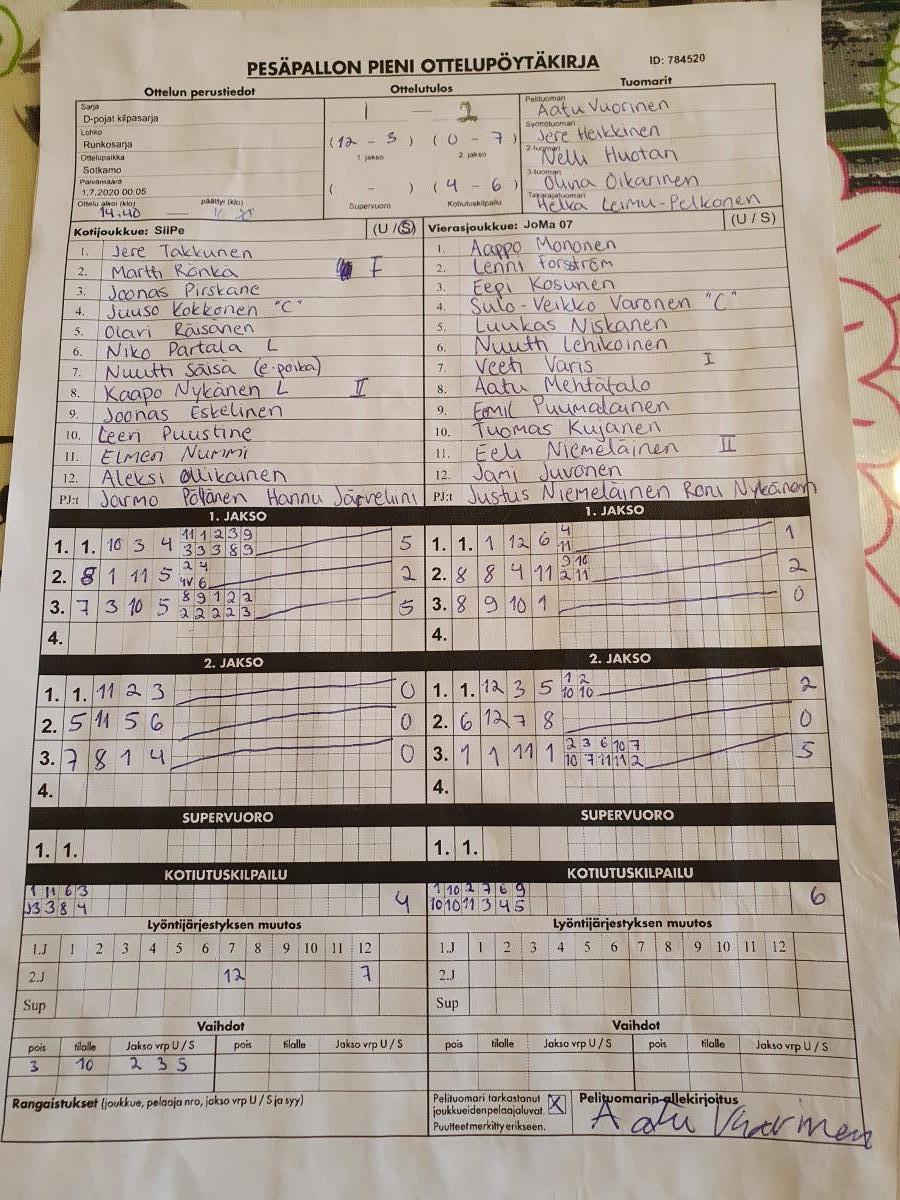 PESÄPALLON PIENI OTTELUPÖYTÄKIRJA ID: 784520
Ottelun perustiedot Ottelutulos Tuomarit
Sarja
D-pojat kilpasarja
Lohko
Runkosarja
Ottelupaikka
Sotkamo
Päivämäärä
1.7.2020 00:05
Ottelu alkoi (klo) päättyi (klo)
14.40 —
1 — 2
(12 - 3) (0 - 7)
1. jakso 2. jakso
( - ) (4 - 6)
Supervuoro Kotiutuskilpailu
Pelituomari
Aatu Vuorinen
Syöttötuomari
Jere Heikkinen
2-tuomari
Nelli Huotari
3-tuomari
Olivia Oikarinen
Takarajatuomari
Helka Leimu-Pelkonen
Kotijoukkue: SiiPe (U / S)
1. Jere Takkunen
2. Martti Rönkä I
3. Joonas Pirskane
4. Juuso Kokkonen "C"
5. Olavi Räisänen
6. Niko Partala L
7. Nuutti Säisä (e-poika)
8. Kaapo Nykänen L II
9. Joonas Eskelinen
10. Leevi Puustine
11. Elmeri Nummi
12. Aleksi Ollikainen
PJ:t Jarmo Pöllänen Hannu Järveläini
Vierasjoukkue: JoMa 07 (U / S)
1. Aappo Mononen
2. Lenni Forsström
3. Eepi Kosunen
4. Sulo-Veikko Varonen "C"
5. Luukas Niskanen
6. Nuutti Lehikoinen
7. Veeti Varis I
8. Aatu Mehtätalo
9. Eemil Puumalainen
10. Tuomas Kujanen
11. Eeli Niemeläinen II
12. Jami Juvonen
PJ:t Justus Niemeläinen Roni Nykänen
1. JAKSO
1. 1. 10 3 4 11 1 2 3 9 5
3 3 3 8 9
2. 8 1 11 5 2 4 2
4V 6
3. 7 3 10 5 8 9 1 2 2 5
2 2 2 2 3
4.
1. JAKSO
1. 1. 1 12 6 4 1
11
2. 8 8 4 11 9 10 2
2 11
3. 8 9 10 1 0
4.
2. JAKSO
1. 1. 11 2 3 0
2. 5 11 5 6 0
3. 7 8 1 4 0
4.
2. JAKSO
1. 1. 12 3 5 1 2 2
10 10
2. 6 12 7 8 0
3. 1 1 11 1 2 3 6 10 7 5
10 7 11 11 2
4.
SUPERVUORO
1. 1.
SUPERVUORO
1. 1.
KOTIUTUSKILPAILU
1 11 6 3 4
3 8 4
KOTIUTUSKILPAILU
1 10 2 7 6 9 6
10 10 11 3 4 5
Lyöntijärjestyksen muutos
1.J 1 2 3 4 5 6 7 8 9 10 11 12
2.J 12 7
Sup
Lyöntijärjestyksen muutos
1.J 1 2 3 4 5 6 7 8 9 10 11 12
2.J
Sup
Vaihdot
pois tilalle Jakso vrp U / S pois tilalle Jakso vrp U / S
3 10 2 3 S
Vaihdot
pois tilalle Jakso vrp U / S pois tilalle Jakso vrp U / S
Rangaistukset (joukkue, pelaaja nro, jakso vrp U / S ja syy)
Pelituomari tarkastanut
joukkueiden pelaajaluvat. X
Puutteet merkitty erikseen.
Pelituomarin allekirjoitus
Aatu Vuorinen